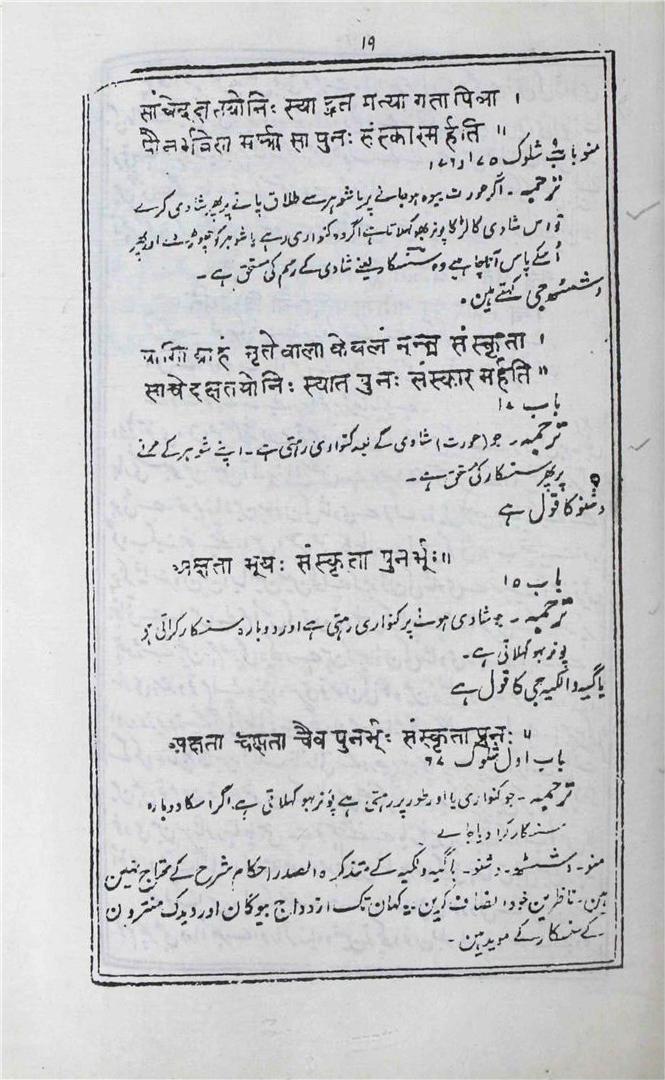 ١٩
साचेदक्षतयोनिः स्याद्गत मत्या गतापिवा ।
पौनर्भवेसा मर्त्र्या सा पुनः संस्कारमर्हति ॥
منو باب شلوک ١٧٥ و ١٧٦
ترجمہ۔ اگر عورت بیوہ ہو جانے پر یا شوہر سے طلاق پانے پر پھر شادی کرے
تو اس شادی کا لڑکا پونربھو کہلاتا ہے اگر وہ کنواری رہے یا شوہر کو چھوڑنے اور پھر
اُسکے پاس آنا چاہے وہ سنسکار یعنے شادی کے رسم کی مستحق ہے۔
وششٹھ جی کہتے ہین۔
ग्राहं मृते वाला केवलं संस्कृता ।
साचेदक्षतयोनिः स्यात पुनः संस्कार मर्हति ॥
باب ١٧
ترجمہ۔ جو (عورت) شادی کے بعد کنواری رہتی ہے۔ اپنے شوہر کے مرنے
پر پھر سنسکار کی مستحق ہے۔
وشنو کا قول ہے
अक्षता भूयः संस्कृता पुनर्भूः॥
باب ١٥
ترجمہ۔ جو شادی ہونے پر کنواری رہتی ہے اور دوبارہ سنسکار کراتی ہو
پونربھو کہلاتی ہے۔
یاگیہ والکیہ جی کا قول ہے
अक्षता चक्षता चैव पुनर्भूः संस्कृता पुनः ॥
باب اول شلوک ٦٧
ترجمہ۔ جو کنواری یا اور طور پر رہتی ہے پونربھو کہلاتی ہے اگر اسکا دوبارہ
سنسکار کرا دیا جاے
منو۔ وششٹھ۔ وشنو۔ یاگیہ ولکیہ کے متذکرہ الصدر احکام شرح کے محتاج نہین
ہین۔ ناظرین خود انصاف کرین۔ یہ کہان تک ازدواج بیوگان اور ویدک منترون
کے سنسکار کے موید ہین۔